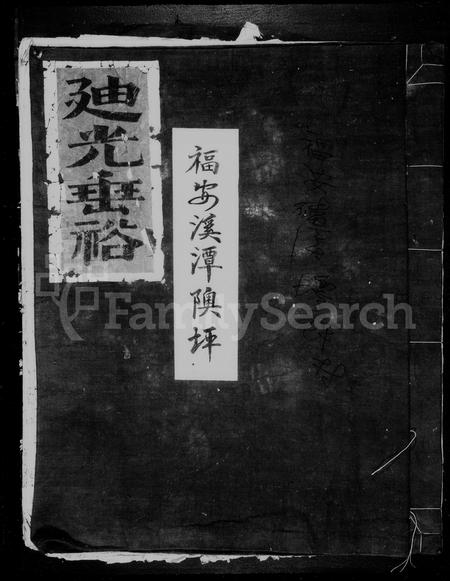 廸光垂裕
福安溪潭隩坪
FamilySearch